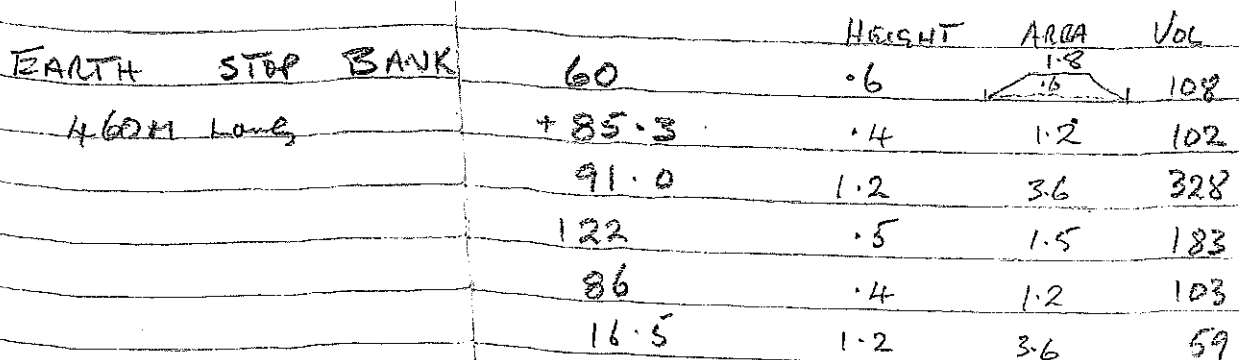 HEIGHT AREA VOL
EARTH STOP BANK 60 .6 1.8 .6 108
460M Long + 85.3 .4 1.2 102
91.0 1.2 3.6 328
122 .5 1.5 183
86 .4 1.2 103
16.5 1.2 3.6 59